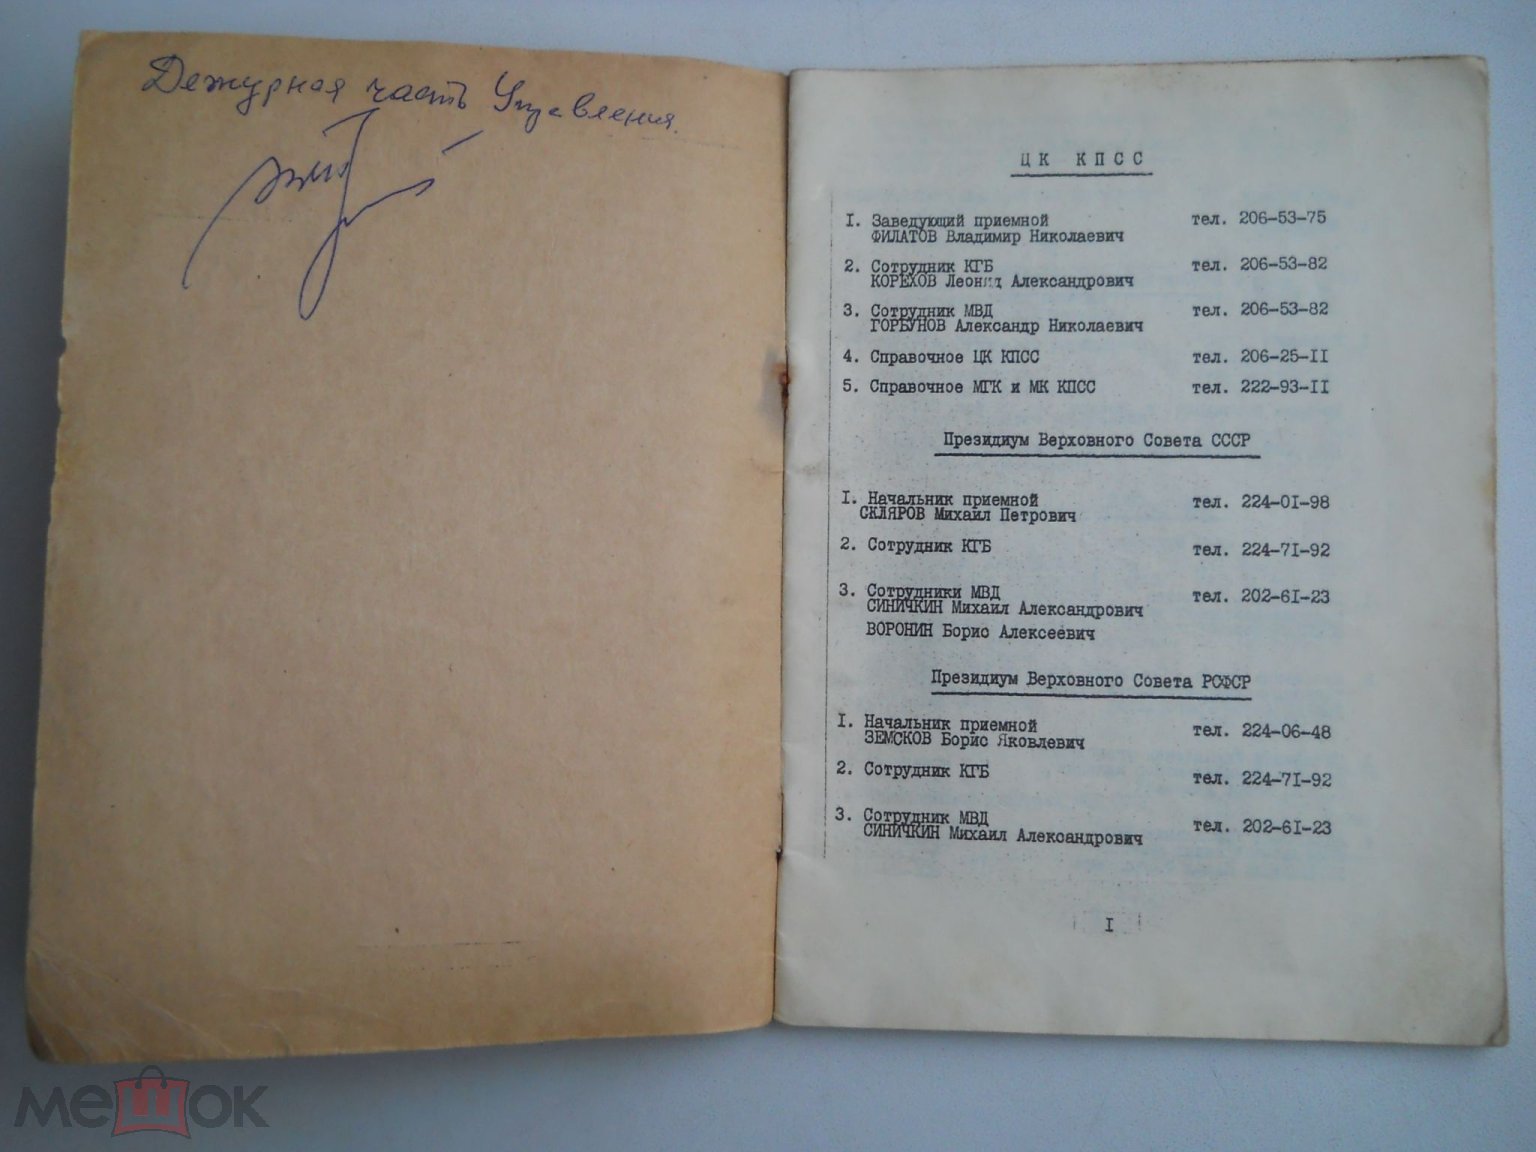 Дежурная часть Управления.
ЦК КПСС
I. Заведующий приемной тел. 206-53-75
ФИЛАТОВ Владимир Николаевич
2. Сотрудник КГБ тел. 206-53-82
КОРЕХОВ Леонид Александрович
3. Сотрудник МВД тел. 206-53-82
ГОРБУНОВ Александр Николаевич
4. Справочное ЦК КПСС тел. 206-25-II
5. Справочное МГК и МК КПСС тел. 222-93-II
Президиум Верховного Совета СССР
I. Начальник приемной тел. 224-0I-98
СКЛЯРОВ Михаил Петрович
2. Сотрудник КГБ тел. 224-7I-92
3. Сотрудники МВД тел. 202-6I-23
СИНИЧКИН Михаил Александрович
ВОРОНИН Борис Алексеевич
Президиум Верховного Совета РСФСР
I. Начальник приемной тел. 224-06-48
ЗЕМСКОВ Борис Яковлевич
2. Сотрудник КГБ тел. 224-7I-92
3. Сотрудник МВД тел. 202-6I-23
СИНИЧКИН Михаил Александрович
I
мешок